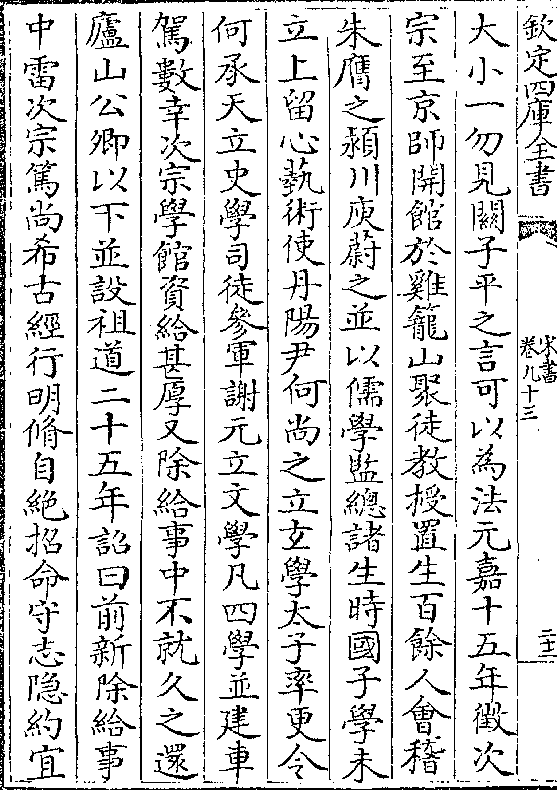 欽定四庫全書
宋書
卷九十三
二十二
大小一勿見關子平之言可以為法元嘉十五年徵次
宗至京師開館於雞籠山聚徒教授置生百餘人會稽
朱膺之潁川庾蔚之並以儒學監總諸生時國子學未
立上留心藝術使丹陽尹何尚之立玄學太子率更令
何承天立史學司徒參軍謝元立文學凡四學並建車
駕數幸次宗學館資給甚厚又除給事中不就久之還
廬山公卿以下並設祖道二十五年詔曰前新除給事
中雷次宗篤尚希古經行明脩自絕招命守志隐約宜